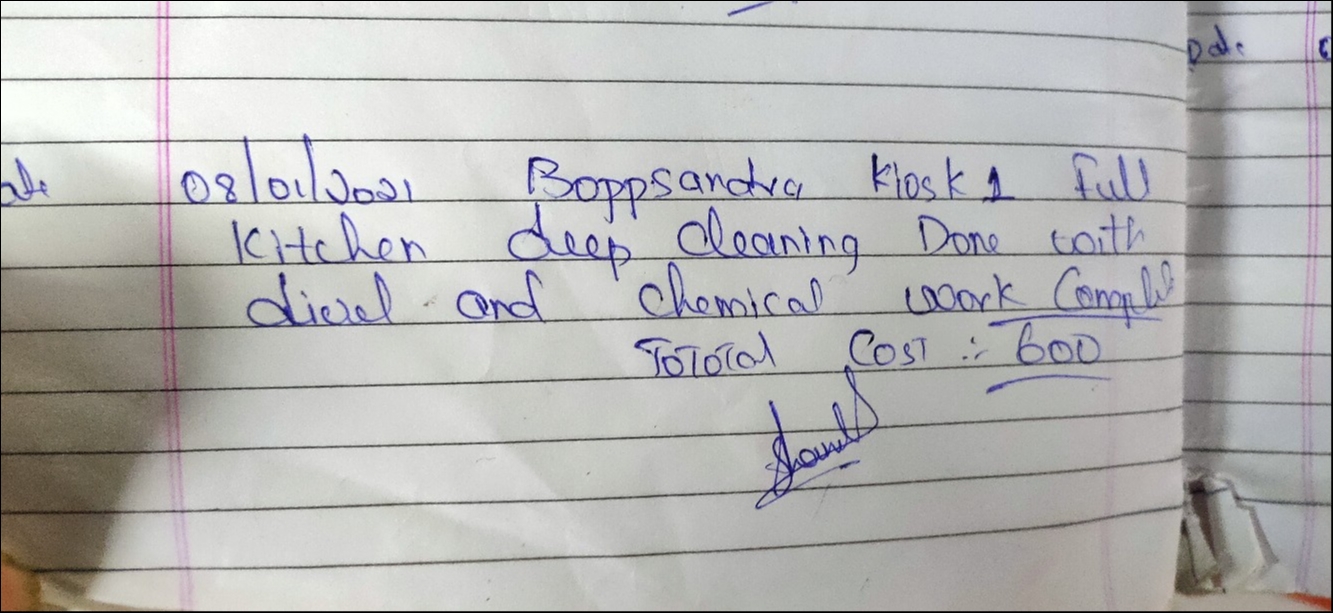 Date
ate 08/01/2021 Boppsandra Kiosk 1 Full
Kitchen deep Cleaning Done with
diesel and Chemical work Complet
TOTOTal COST :- 600